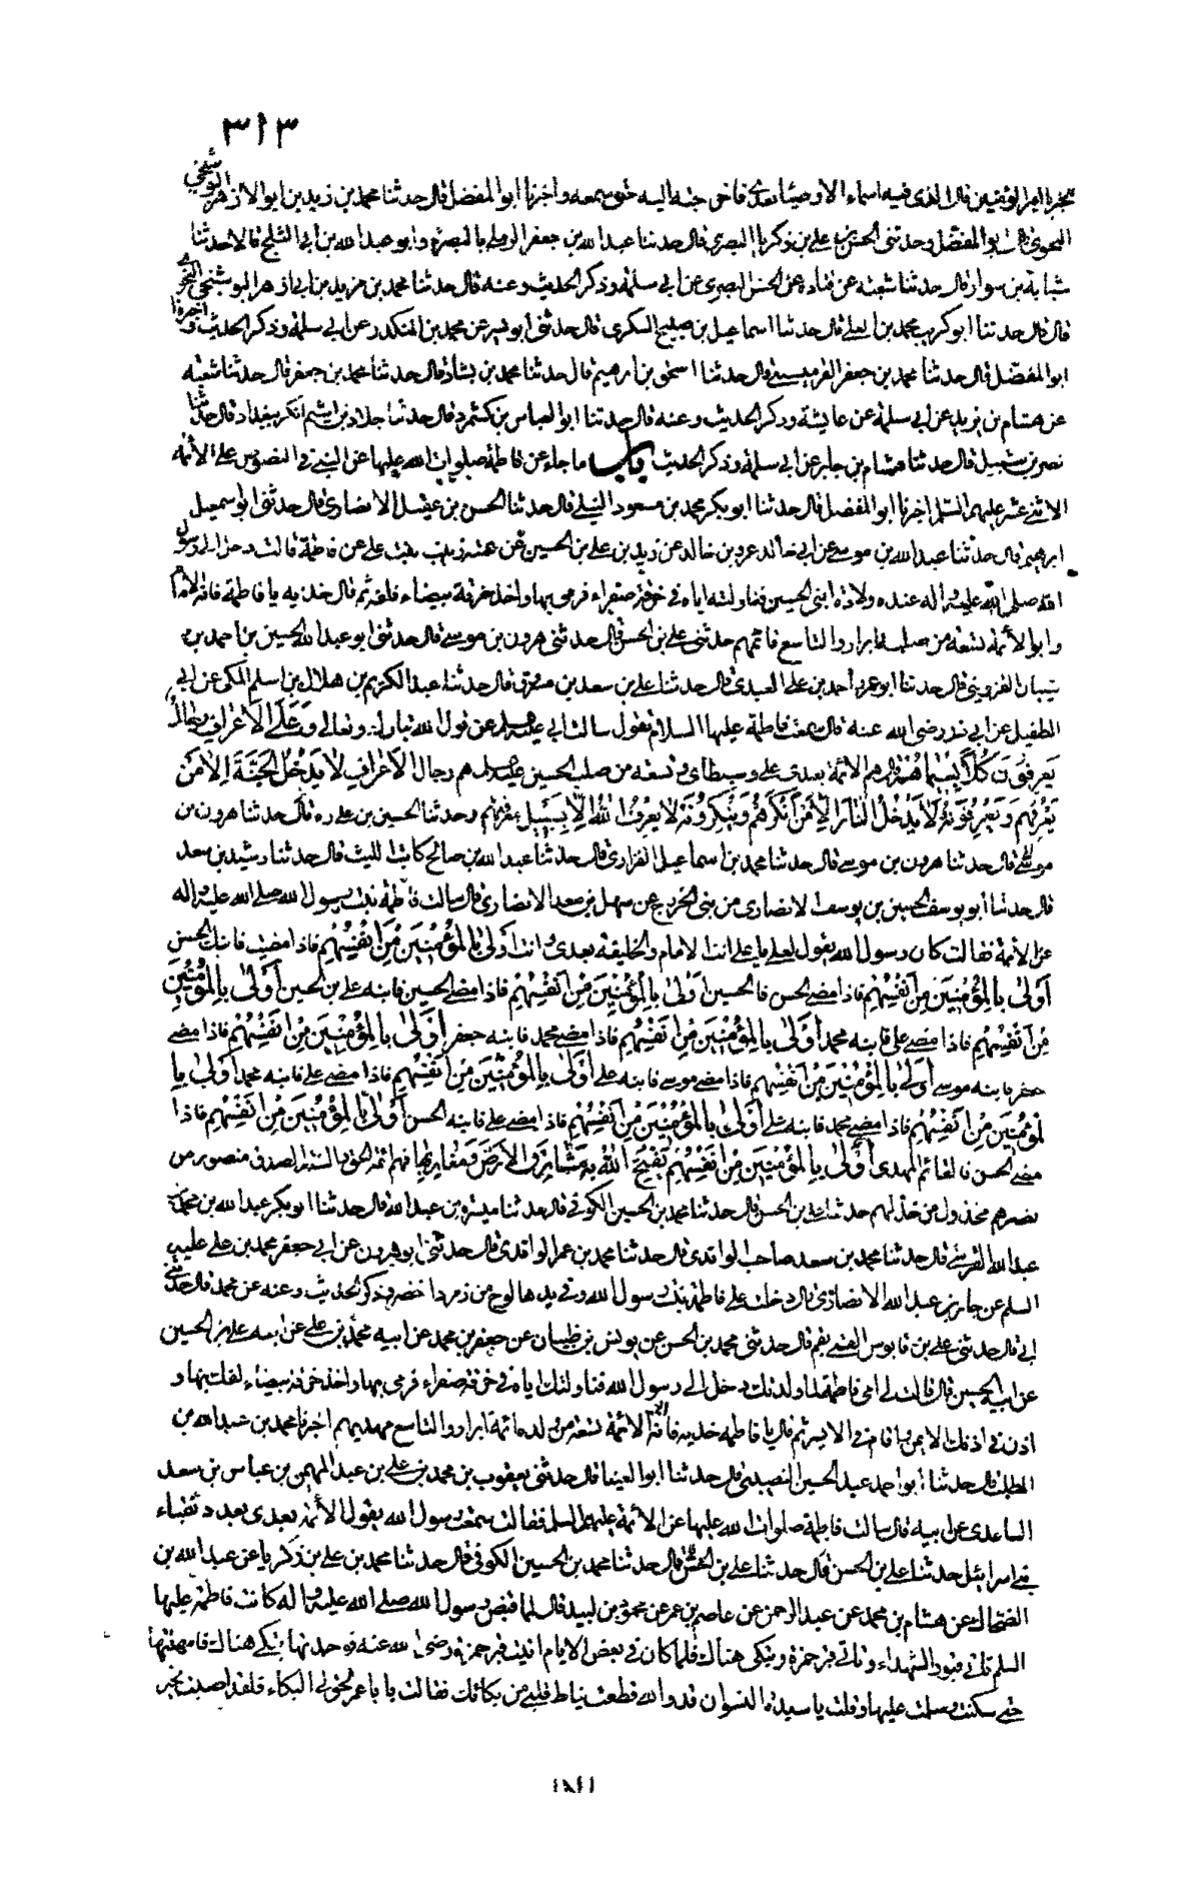 ٣١٣
قال الذى فيه اسماء الاوصياء بعدى فاخرجته اليه حتى سمعه واخبرنا ابو المفضل قال حدثنا محمد بن زيد بن ابو الازهر البوشنجى
النحوى قال ابو المفضل وحدثنى الحسن بن على بن زكريا البصرى قال حدثنا عبد الله بن جعفر الرملى بالبصرة وابو عبد الله بن ابى الثلج قالا حدثنا
شبابة بن سوار قال حدثنا شعبة عن قتادة عن الحسن البصرى عن ابى سلمة وذكر الحديث وعنه قال حدثنا محمد بن مزيد بن ابى ازهر البوشنجى النحوى
قال قال حدثنا ابو كريب محمد بن العلى قال حدثنا اسماعيل بن صبيح اليشكرى قال حدثنى ابو بشر عن محمد بن المنكدر عن ابى سلمة وذكر الحديث و اخبرنا
ابو المفضل قال حدثنا محمد بن جعفر القرميسينى قال حدثنا اسحق بن ابرهيم قال حدثنا محمد بن بشار قال حدثنا محمد بن جعفر قال حدثنا شعبة
عن هشام بن يزيد عن ابى سلمة عن عايشة وذكر الحديث وعنه قال حدثنا ابو العباس بن كشمرد قال حدثنا خلاد بن اشيم ببغداد قال حدثنا
نصر بن شبيل قال حدثنا هشام بن جابر عن ابى سلمة وذكر الحديث باب ما جاء عن فاطمة صلوات الله عليها عن النبى فى النصوص على الائمة
الاثنى عشر عليهم السلم اخبرنا ابو المفضل قال حدثنا ابو بكر محمد بن مسعود النيلى قال حدثنا الحسن بن عقيل الانصارى قال حدثنى ابو اسمعيل
ابرهيم قال حدثنا عبد الله بن موسى عن ابى خالد عمرو بن خالد عن زيد بن على بن الحسين عن عمته زينب بنت على عن فاطمة قالت دخل الى رسول
الله صلى الله عليه واله عند ولادة ابنى الحسين فناولته اياه فى خرقة صفراء فرمى بها واخذ خرقة بيضاء فلفه ثم قال خذيه يا فاطمة فانه الامام
وابو الائمة تسعة من صلبه ابرار والتاسع قائمهم حدثنى على بن الحسن قال حدثنى هرون بن موسى قال حدثنى ابو عبد الله الحسين بن احمد بن
شيبان القزوينى قال حدثنا ابو عمر احمد بن على العبدى قال حدثنا على بن سعد بن مسروق قال حدثنا عبد الكريم بن هلال بن اسلم المكى عن ابى
الطفيل عن ابى ذر رضى الله عنه قال سمعت فاطمة عليها السلام تقول سالت ابى عليه السلم عن قول الله تبارك وتعالى وَعَلَى الْاَعْرافِ رِجالٌ
يَعْرِفُونَ كُلًّا بِسِيماهُمْ قال هم الائمة بعدى على وسبطاى وتسعة من صلب الحسين عليه السلم هم رجال الاَعْرافِ لا يَدْخُلُ الْجَنَّةَ اِلاّ مَنْ
يَعْرِفُهُمْ وَيَعْرِفُونَهُ وَلا يَدْخُلُ النّارَ اِلاّ مَنْ اَنْكَرَهُمْ وَيُنْكِرُونَهُ لا يُعْرَفُ اللهُ اِلاّ بِسَبيلِ مَعرفتهم وحدثنا الحسين بن على ره قال حدثنا هرون بن
موسى قال حدثنا هرون بن موسى قال حدثنا محمد بن اسماعيل الفزارى قال حدثنا عبد الله بن صالح كاتب الليث قال حدثنا رشيد بن سعد
قال حدثنا ابو يوسف الحسين بن يوسف الانصارى من بنى الخزرج عن سهل بن سعد الانصارى قال سالت فاطمة بنت رسول الله صلى الله عليه واله
عن الائمة فقالت كان رسول الله يقول لعلى يا على انت الامام والخليفة بعدى وانت اَوْلى بِالْمُؤْمِنينَ مِنْ اَنْفُسِهِمْ فاذا مضيت فابنك الحسن
اَوْلى بِالْمُؤْمِنينَ مِنْ اَنْفُسِهِمْ فاذا مضى الحسن فالحسين اَوْلى بِالْمُؤْمِنينَ مِنْ اَنْفُسِهِمْ فاذا مضى الحسين فابنه على بن الحسين اَوْلى بِالْمُؤْمِنينَ
مِنْ اَنْفُسِهِمْ فاذا مضى على فابنه محمد اَوْلى بِالْمُؤْمِنينَ مِنْ اَنْفُسِهِمْ فاذا مضى محمد فابنه جعفر اَوْلى بِالْمُؤْمِنينَ مِنْ اَنْفُسِهِمْ فاذا مضى
جعفر فابنه موسى اَوْلى بِالْمُؤْمِنينَ مِنْ اَنْفُسِهِمْ فاذا مضى موسى فابنه على اَوْلى بِالْمُؤْمِنينَ مِنْ اَنْفُسِهِمْ فاذا مضى على فابنه محمد اَوْلى بِا
لْمُؤْمِنينَ مِنْ اَنْفُسِهِمْ فاذا مضى محمد فابنه على اَوْلى بِالْمُؤْمِنينَ مِنْ اَنْفُسِهِمْ فاذا مضى على فابنه الحسن اَوْلى بِالْمُؤْمِنينَ مِنْ اَنْفُسِهِمْ فاذا
مضى الحسن فالقائم المهدى اَوْلى بِالْمُؤْمِنينَ مِنْ اَنْفُسِهِمْ يَفْتَحُ اللهُ بِهِ مَشارِقَ الْاَرْضِ وَمَغارِبَها فهم ائمة الحق والسنة الصدق منصور من
نصرهم مخذول من خذلهم حدثنا على بن الحسن قال حدثنا محمد بن الحسين الكوفى قال حدثنا ميسرة بن عبد الله قال حدثنا ابو بكر عبد الله بن محمد بن
عبد الله القرشى قال حدثنا محمد بن سعد صاحب الواقدى قال حدثنا محمد بن عمر الواقدى قال حدثنى ابو هرون عن ابى جعفر محمد بن على عليه
السلم عن جابر بن عبد الله الانصارى قال دخلت على فاطمة بنت رسول الله وفى يدها لوح من زمرد اخضر وذكر الحديث وعنه عن محمد قال حدثنى
ابى قال حدثنى على بن قابوس القمى بقم قال حدثنى محمد بن الحسن عن يونس بن ظبيان عن جعفر بن محمد عن ابيه محمد بن على عن ابيه على بن الحسين
عن ابيه الحسين قال قالت لى امى فاطمة لما ولدتك دخل الى رسول الله فناولتك اياه فى خرقة صفراء فرمى بها واخذ خرقة بيضاء لفك بها و
اذن فى اذنك الايمن واقام فى الايسر ثم قال يا فاطمة خذيه فانه ابو الائمة تسعة من ولده ائمة ابرار والتاسع مهديهم اخبرنا محمد بن عبد الله بن
المطلب قال حدثنا ابو احمد عبيد الحسين النصيبى قال حدثنا ابو العينا قال حدثنى يعقوب بن محمد بن على بن عبد المهيمن بن عباس بن سعد
الساعدى عن ابيه قال سالت فاطمة صلوات الله عليها عن الائمة عليهم السلم فقالت سمعت رسول الله يقول الائمة بعدى بعدد نقباء
بنى اسرائيل حدثنا على بن الحسن قال حدثنا على بن الحسن قال حدثنا محمد بن الحسين الكوفى قال حدثنا محمد بن على بن زكريا عن عبد الله بن
الضحاك عن هشام بن محمد عن عبد الرحمن عن عاصم بن عمر عن محمود بن لبيد قال لما قبض رسول الله صلى الله عليه واله كانت فاطمة عليها
السلم تاتى قبور الشهداء وتاتى قبر حمزة وتبكى هناك فلما كان فى بعض الايام اتيت قبر حمزة رضى الله عنه فوجدتها تبكى هناك فامهلتها
حتى سكنت وسلمت عليها وقلت يا سيدة النسوان قد والله قطعت نياط قلبى من بكائك فقالت يا با عمر لحق لى البكاء فلقد اصبت بخير